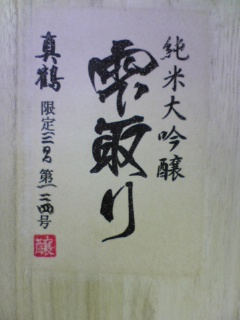 純米大吟醸
雫取り
真鶴
限定三百第一二四号
醸